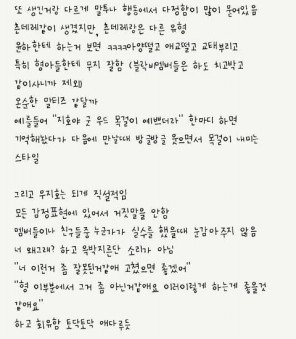 또 생긴거랑 다르게 말투나 행동에서 다정함이 많이 묻어있음
츤데레같이 생겼지만, 츤데레랑은 다른 유형
윤하한테 하는거 보면 ㅋㅋㅋㅋ아양떨고 애교떨고 교태부리고
특히 형아들한테 무지 잘함 (블락비멤버들은 하도 치고박고
같이사니까 제외)
온순한 맘티즈 같달까
예를들어 "지호야 굿 우드 목걸이 예쁘더라" 한마디 하면
기억해놨다가 다음에 만날때 방글방글 웃으면서 목걸이 내미는
스타일
그리고 우지호는 되게 직설적임
모든 감정표현에 있어서 거짓말을 안함
멤버들이나 친구들중 누군가가 실수를 했을때 눈감아주지 않음
너 왜그래? 하고 윽박지른단 소리가 아님
"너 이런거 좀 잘못된거같애 고쳤으면 좋겠어"
"형 이부분에서 그거 좀 아닌거같애요 이러이렇게 하는게 좋을것
같애요"
하고 회유함 토닥토닥 애다루듯